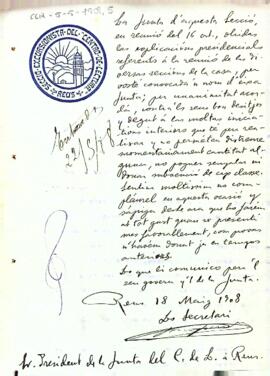 SECCIÓ EXCURSIONISTA DEL CENTRE DE LECTURA
REUS
La Junta d'aquesta Secció,
en reunió del 16 cnt., oidas
las explicacións presidencials
referents á la reunió de las di-
versas seccións de la casa, pre-
vote convocada á nom d'eixa
Junta; per unanimitat acor-
dá, contra'ls seus bon desitjos
y degut á las moltas inicia-
tivas interiors que te per rea-
lisar y no permetan distreure
momentaniament cantitat al-
guna, no poguer senyalar ni
donar subvenció de cap classe.
Sentim moltíssim no com-
plaurel en aquesta ocasió y
sápiga desde ara que ho farem
al tot gust quan se presenti
mes favorablement, com provas
n'havém donat ja en temps
anteriors.
Lo que li comunico per l'
seu govern y'l de la Junta.
Reus 18 Maig 1908
Lo Secretari
Sr. President de la Junta del C. de L. á Reus.